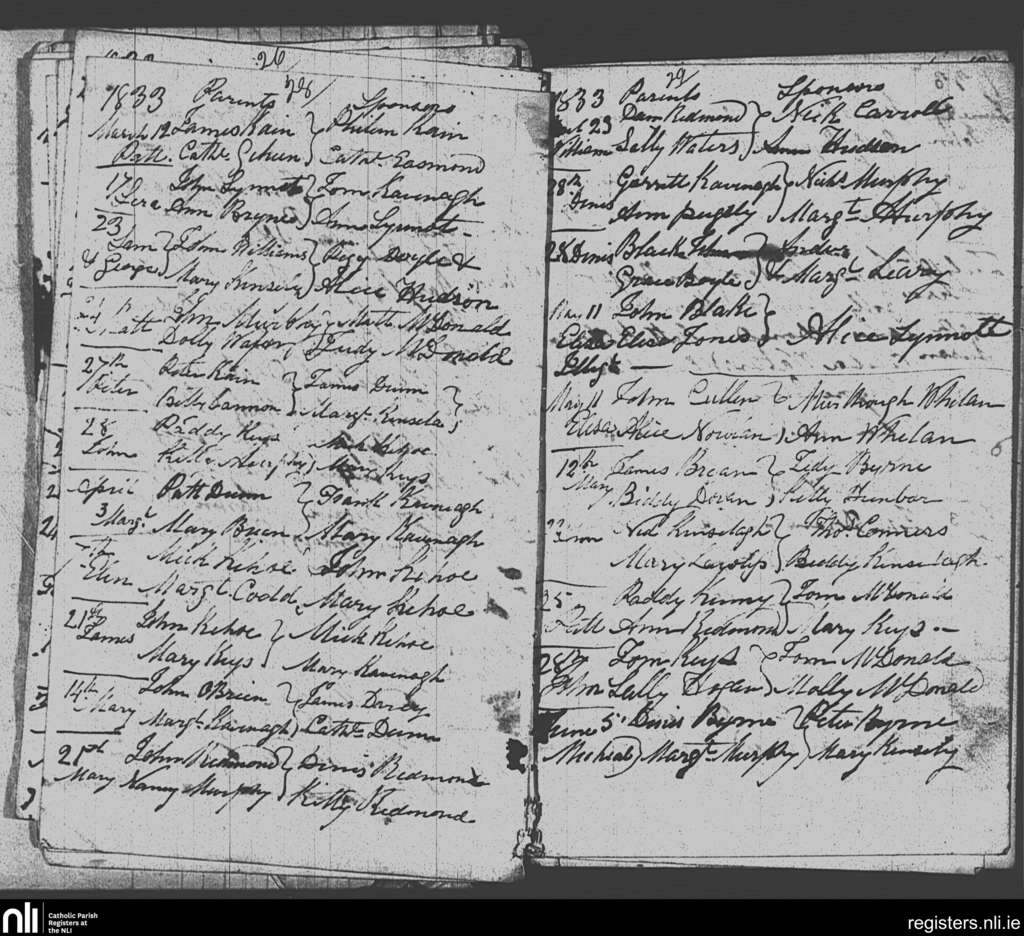 26
28
1833 Parents Sponsors
March 12 James Kain } Philim Kain
Patt. Cathe. } Cathe. Esmond
17 John Synnot } Tom Kavanagh
Ann Bryne } Ann Synnot
23
Sam } John Williams } Peggy Doyle &
& George } Mary Kinsela } Alice Hudson
Patt John Matt McDonald
Dolly } Judy McDonald
27th Peter Kain } James Dunn }
Peter Betty Cannon } Margt. Kinsela }
28 Paddy Keys Mick Kehoe
John Kitty Murphy } Mary Keys
April Patt Dunn } Frank Kavenagh
3 Margt. Mary Brien } Mary Kavanagh
7th Mick Kehoe John Kehoe
Elen Margt. Codd Mary Kehoe
21th John Kehoe } Mick Kehoe
James Mary Keys } Mary Kavanagh
14th John OBrien } James
Mary Margt. Kavanagh } Cathe. Dunn
21st John Redmond } Dinis Redmond
Mary Nancy Murphy } Kitty Redmond
29
1833 Parents Sponsors
23 Dam Redmond } Nick Carroll
William Sally Waters } Ann Hudson
28th Garrett Kavenagh } Nichs Murphy
Dinis Ann Pugsly } Margt. Murphy
28 Dinis Black
Grace Boyle } & Margt. Leary
May 11 John Blake }
Eliza Eliza Jones } Alice Synnott
Illegt —
May 11 John Cullen } Whelan
Elisa Alice Nowlan } Ann Whelan
12th James Brean } Byrne
Mary Biddy Doran } Kitty Dunbar
Ned Kinselagh } Thos. Conners
Mary } Biddy Kinselagh
25 Paddy Kinny } Tom McDonald
Patt Ann Redmond } Mary Keys
28th Tom Keys } Tom McDonald
John Sally Hogan } Molly McDonald
June 5 Dinis Byrne } Peter Byrne
Micheal } Margt. Murphy } Mary Kinsely
nli Catholic Parish
Registers at
the NLI
registers.nli.ie